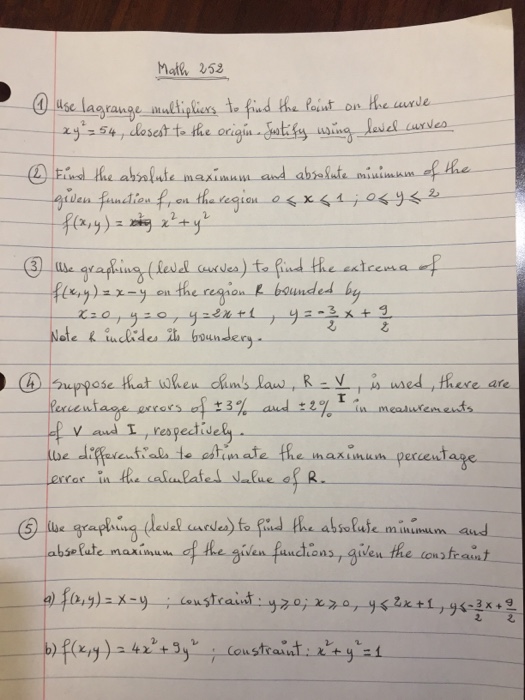 Math 252
① Use lagrange multipliers to find the Point on the curve
xy² = 54, closest to the origin. Justify using level curves
② Find the absolute maximum and absolute minimum of the
given function f, on the region 0 ≤ x ≤ 1 ; 0 ≤ y ≤ 2
f(x,y) = x² + y²
③ Use graphing (level curves) to find the extrema of
f(x,y) = x - y on the region R bounded by
x = 0, y = 0, y = 2x + 1, y = -3/2 x + 9/2
Note R includes its boundery.
④ Suppose that when ohm's law, R = V/I, is used, there are
Percentage errors of ±3% and ±2% in measurements
of V and I, respectively.
Use differentials to estimate the maximum percentage
error in the calculated value of R.
⑤ Use graphing (level curves) to find the absolute minimum and
absolute maximum of the given functions, given the constraint
a) f(x,y) = x - y ; constraint: y ≥ 0; x ≥ 0, y ≤ 2x + 1, y ≤ -3/2 x + 9/2
b) f(x,y) = 4x² + 9y² ; constraint: x² + y² = 1